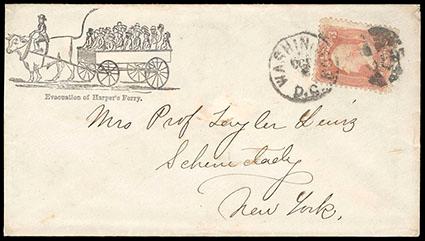 Evacuation of Harper's Ferry.
WASHINGTON
D.C.
Mrs Prof Tayler Lewis
Schenectady
New York.